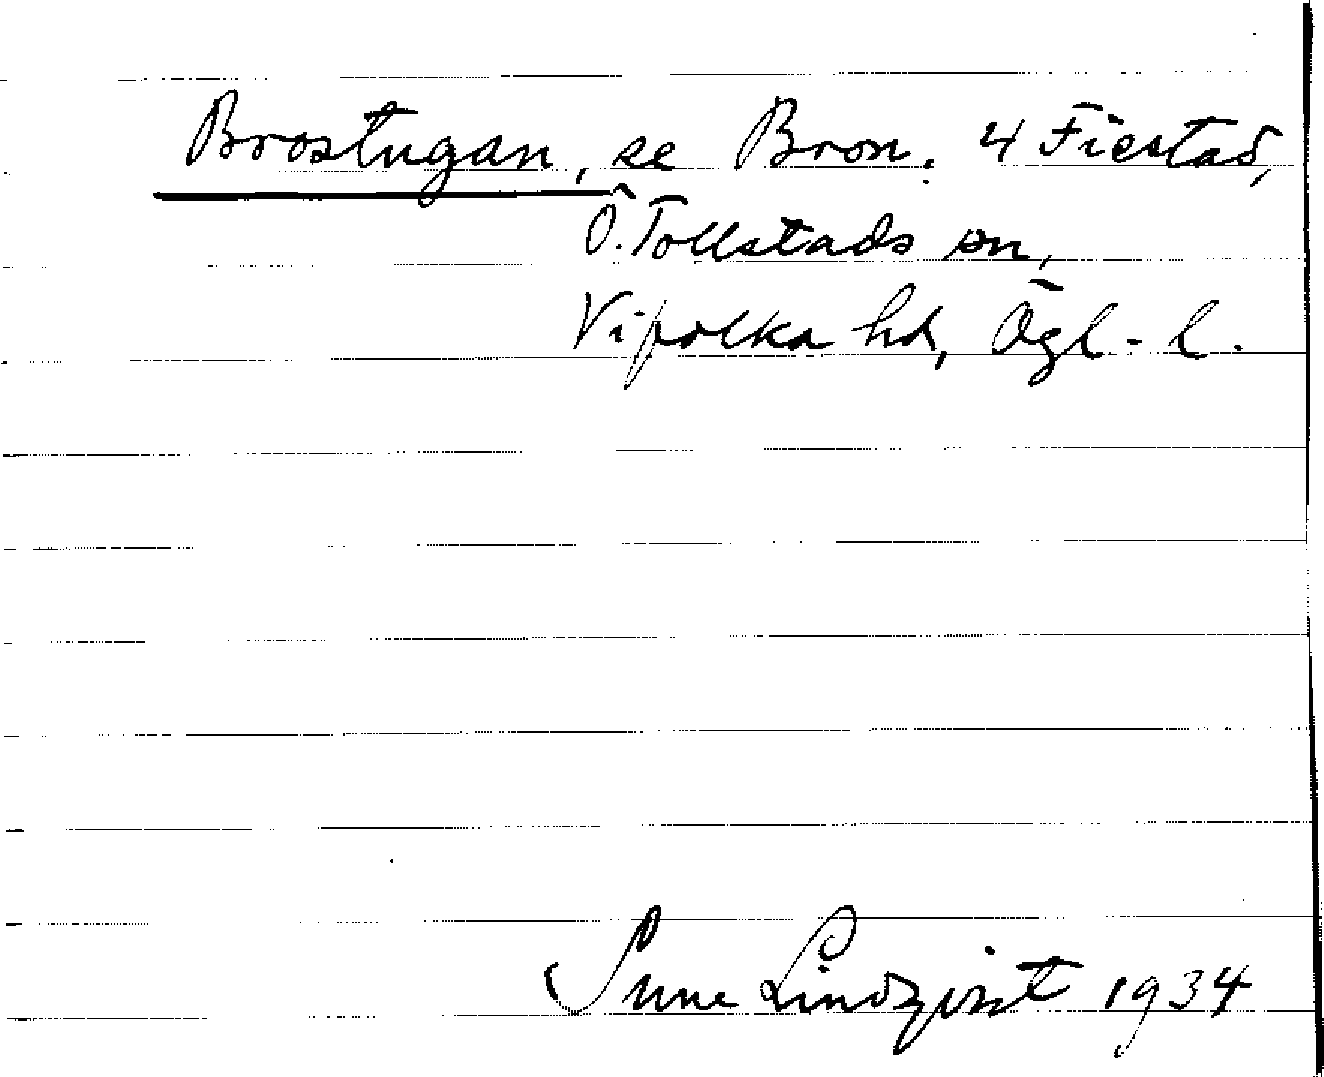 Brostugan, se Bron. 4 Fiestad,
Ö. Tollstads sn,
Vifolka hd, Ögl. l.
Sune Lindqvist 1934